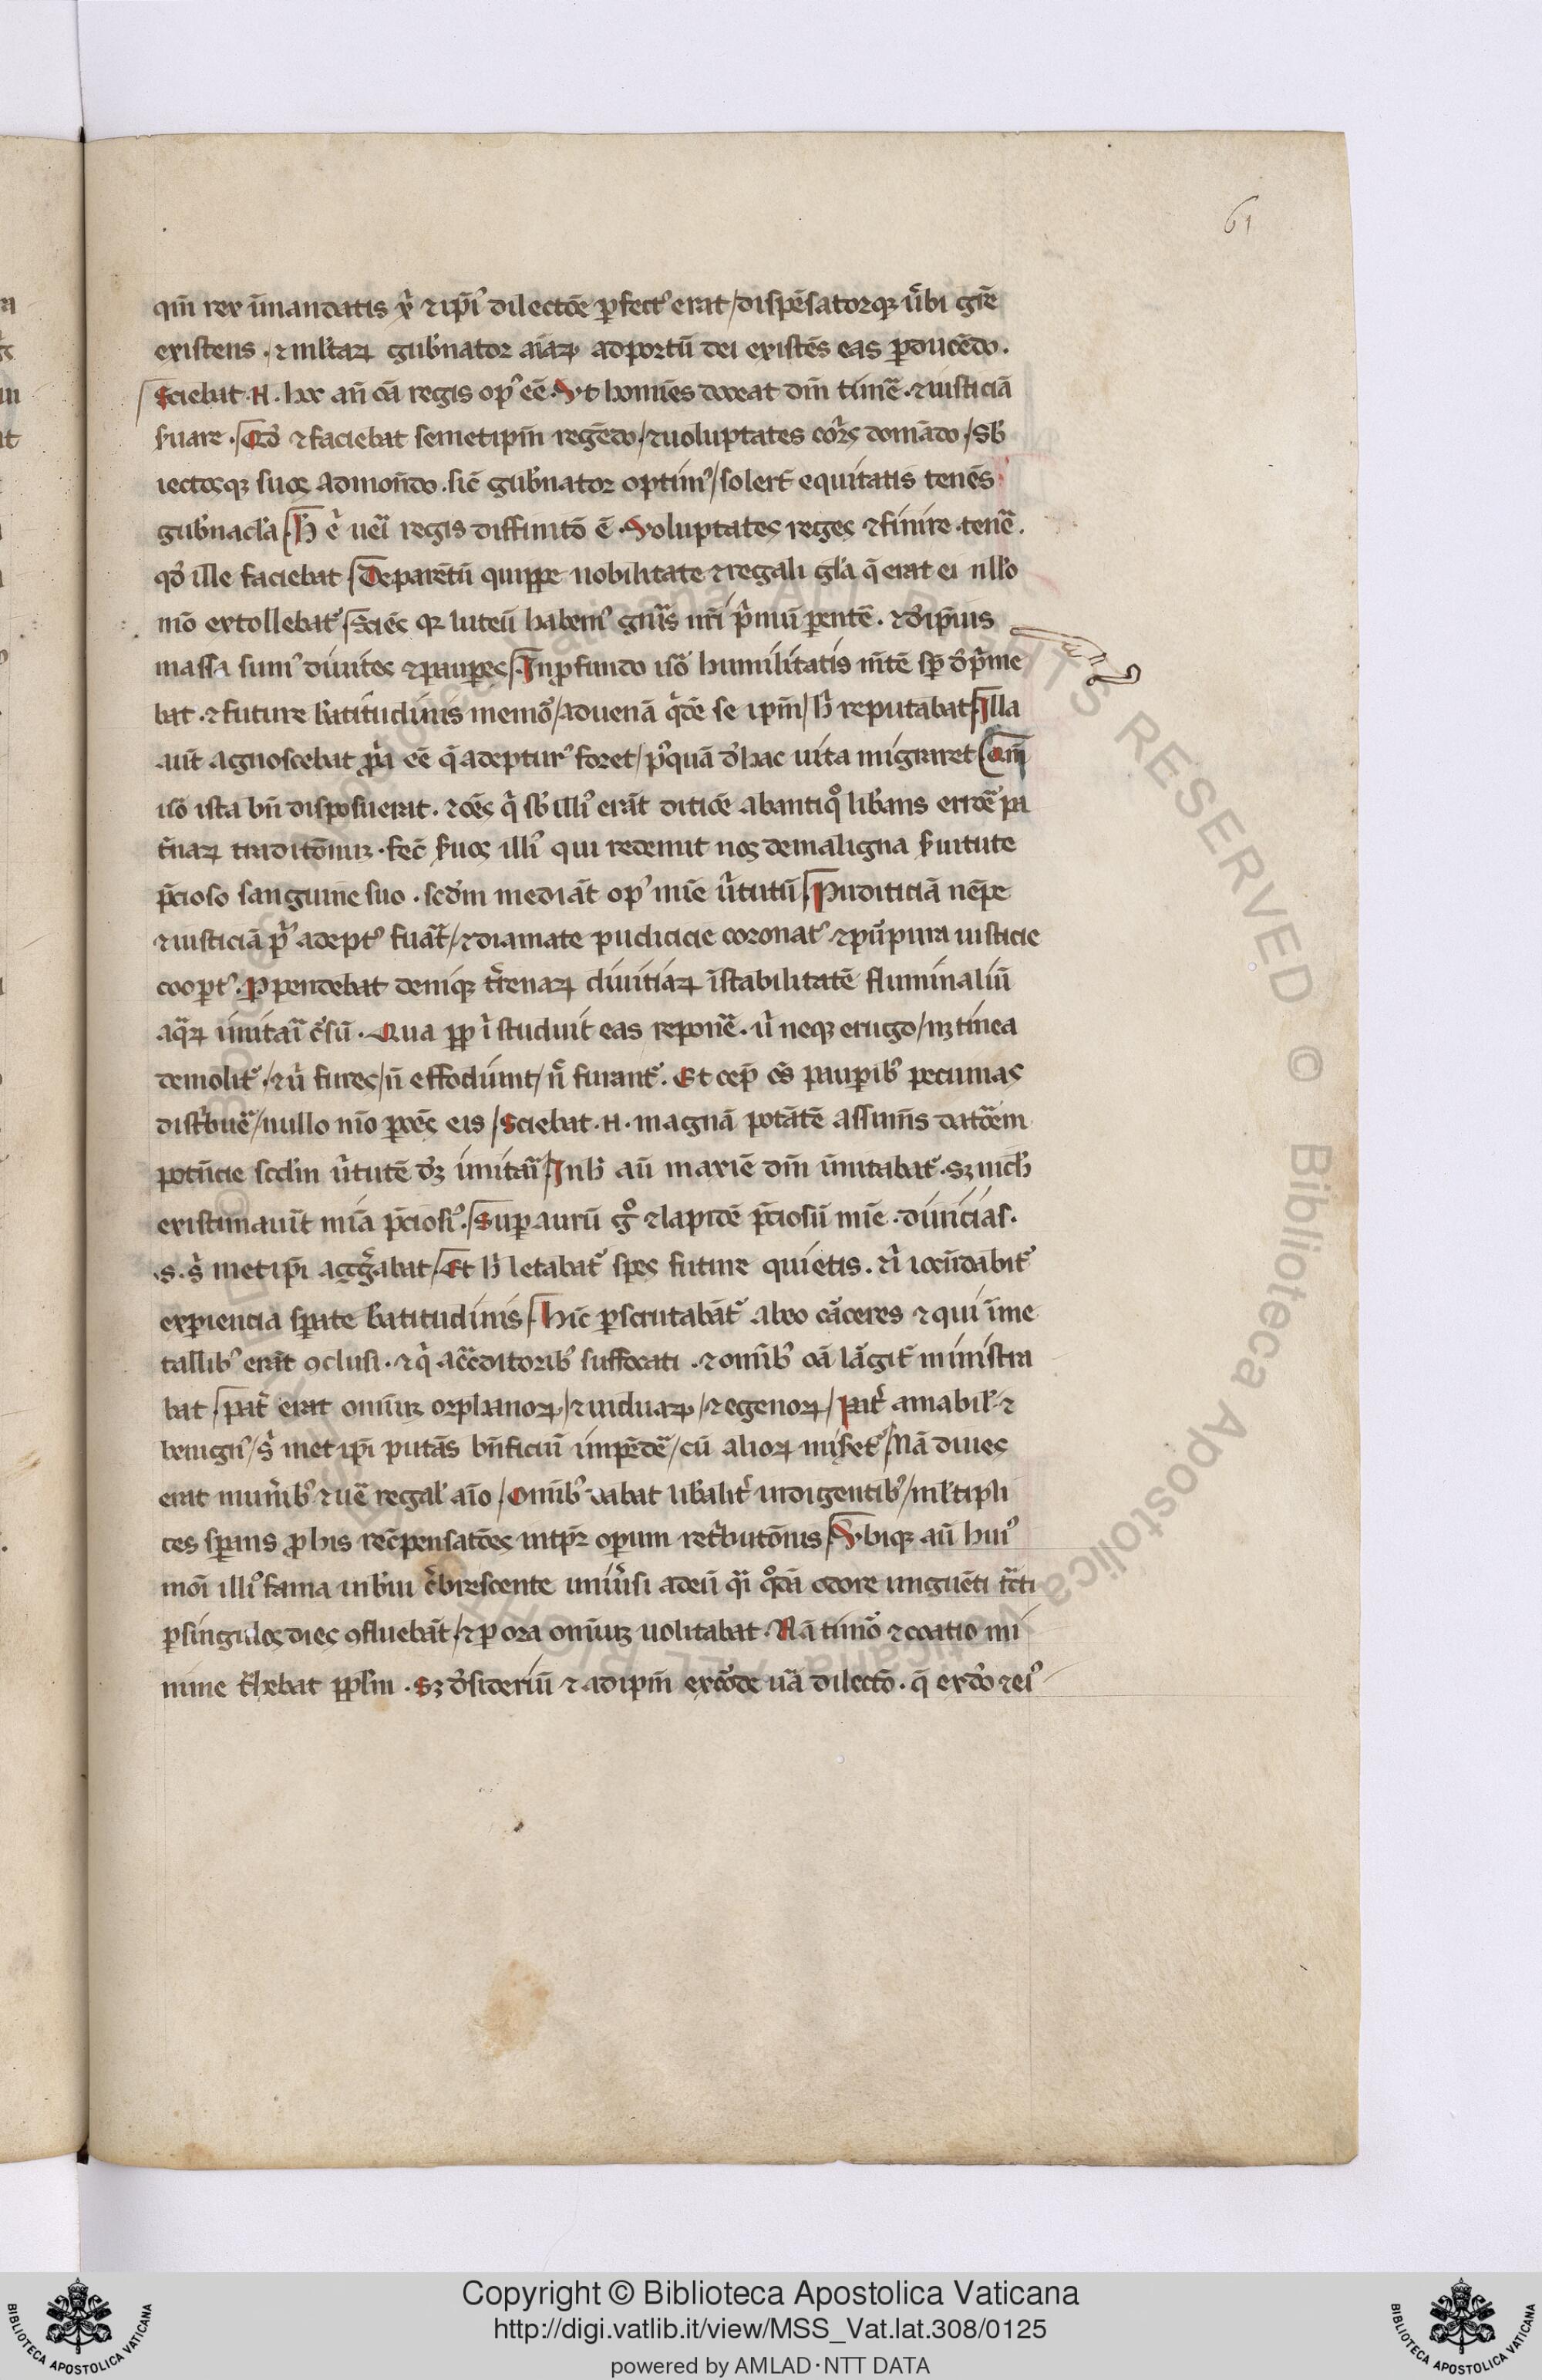 61
qm̄ rex ī mandatis xp̄i ⁊ ip̄i᷒ dilectōe ꝑfect᷒ erat / dispēsatorqꝫ ūbi gr̄e
existens . ⁊ ml̄taꝝ gub̄nator aīaꝝ ad portū dei existēs eas ꝑducēdo .
Sciebat .n. hoc an̄ oīa regis op᷒ eē . Vt homīes doceat dm̄ timē . ⁊ iusticiā
s̄uare . Qd̄ ⁊ faciebat semetip̄m regēdo / ⁊ uoluptates domādo / sb̄
iectosqꝫ suos admon̄do . sic̄ gub̄nator optim᷒ / solert̄ equitatis tenēs
gub̄nacl̄a H̄ ē ueī regis diffinitō ē . Voluptates reges ⁊ finire . tenē .
qd̄ ille faciebat De parētū quippe nobilitate ⁊ regali gl̄a q̄ erat ei nl̄lo
mō extollebat᷒ Sciēs qꝫ luteū habem᷒ gn̄is nr̄i p̄mū pentē . ⁊ d̄ ip̄ius
massa sum᷒ diuites ⁊ pauꝑes In ꝓfundo iḡ humilitatis mētē sp̄ dp̄me
bat . ⁊ future b̄atitudinis memōr / aduenā qⁱdē se ip̄m / h̄ reputabat Illa
aūt agnoscebat ꝓp̄a eē q̄ adeptur᷒ foret / pꝰquā d̄ hac uita migraret Qm̄
ista bn̄ disposuerat . ⁊ oēs qⁱ sb̄ illi᷒ erāt ditiōe ab antiqͦ lib̄ans errōe pa
t̄naꝝ traditōnuꝫ . fec̄ s̄uos illi᷒ qui redemit nos de maligna s̄uitute
p̄cioso sanguine suo . sed̄m mediāt op᷒ mīe ūtutū Pudiciciā nēpe
⁊ iusticiā pⁱ᷒ adept᷒ fuāt / ⁊ diamate pudicicie coronat᷒ ⁊ pūpura iusticie
cooꝑt᷒ . Ꝑpendebat deniqꝫ t̄renaꝝ diuitiaꝝ īstabilitatē fluminaliū
aq̄ꝝ imitaī c̄sū . Qua pp̄ ī studuit eas reponē . uⁱ neqꝫ erugo / nꝫ tinea
demolit᷒ / ⁊ uⁱ fures / n̄ effodiunt / n̄ furant᷒ . Et cep̄ pauꝑib᷒ pecunias
dist̄buē / nullo mō ꝑcēs eis / Sciebat .n. magnā potātē assumēs datōem
potēcie scd̄m ūtutē dꝫ imitaī In h̄ aū maxīe dm̄ īmitabat᷒ . sꝫ nich̄
existimauit mīa p̄ciosi᷒ . Suꝑ aurū gͦ ⁊ lapidē p̄ciosū mīe . diuicias .
.s. sⁱ met ip̄i aggⁱgabat / Et h̄ letabat᷒ spes future quietis . ⁊ uⁱ iocūdabit᷒
exꝑiencia sꝑate b̄atitudinis Hic̄ ꝑscrutabāt᷒ ab eo cāceres ⁊ qui ī me
tallib᷒ erāt ꝯclusi . ⁊ qⁱ ditorib᷒ suffocati . ⁊ omīb᷒ oīa lāgit̄ ministra
bat Pat̄ erat oīm orphanoꝝ / ⁊ uiduaꝝ / ⁊ egenoꝝ / pat̄ amabil̄ ⁊
benign᷒ / sⁱ met ip̄i putās bn̄ficiū impēdē / cū alioꝝ Nā diues
erat mun̄ib᷒ ⁊ uē regal̄ aīo / omīb᷒ dabat lib̄alit̄ indigentib᷒ / ml̄tipli
ces sꝑans ꝓ his rec̄pensatōes opeium ret̄butōnis Vbiqꝫ aū hui᷒
moī illi᷒ fama in b̄ui c̄brescente uniūsi ad eū qⁱ qͦdā odore unguēti t̄cti
ꝑ singulos dies ꝯfluebāt / ⁊ ꝑ ora oīm uolitabat . Nā timōr ⁊ coatio mi
nime t̄hebat ppl̄m . Sꝫ d̄siderīū ⁊ ad ip̄m ex cōde ūa dilectō . q̄ ex dō ⁊ ei᷒
Copyright © Biblioteca Apostolica Vaticana
http://digi.vatlib.it/view/MSS_Vat.lat.308/0125
powered by AMLAD·NTT DATA
BIBLIOTECA APOSTOLICA VATICANA
BIBLIOTECA APOSTOLICA VATICANA